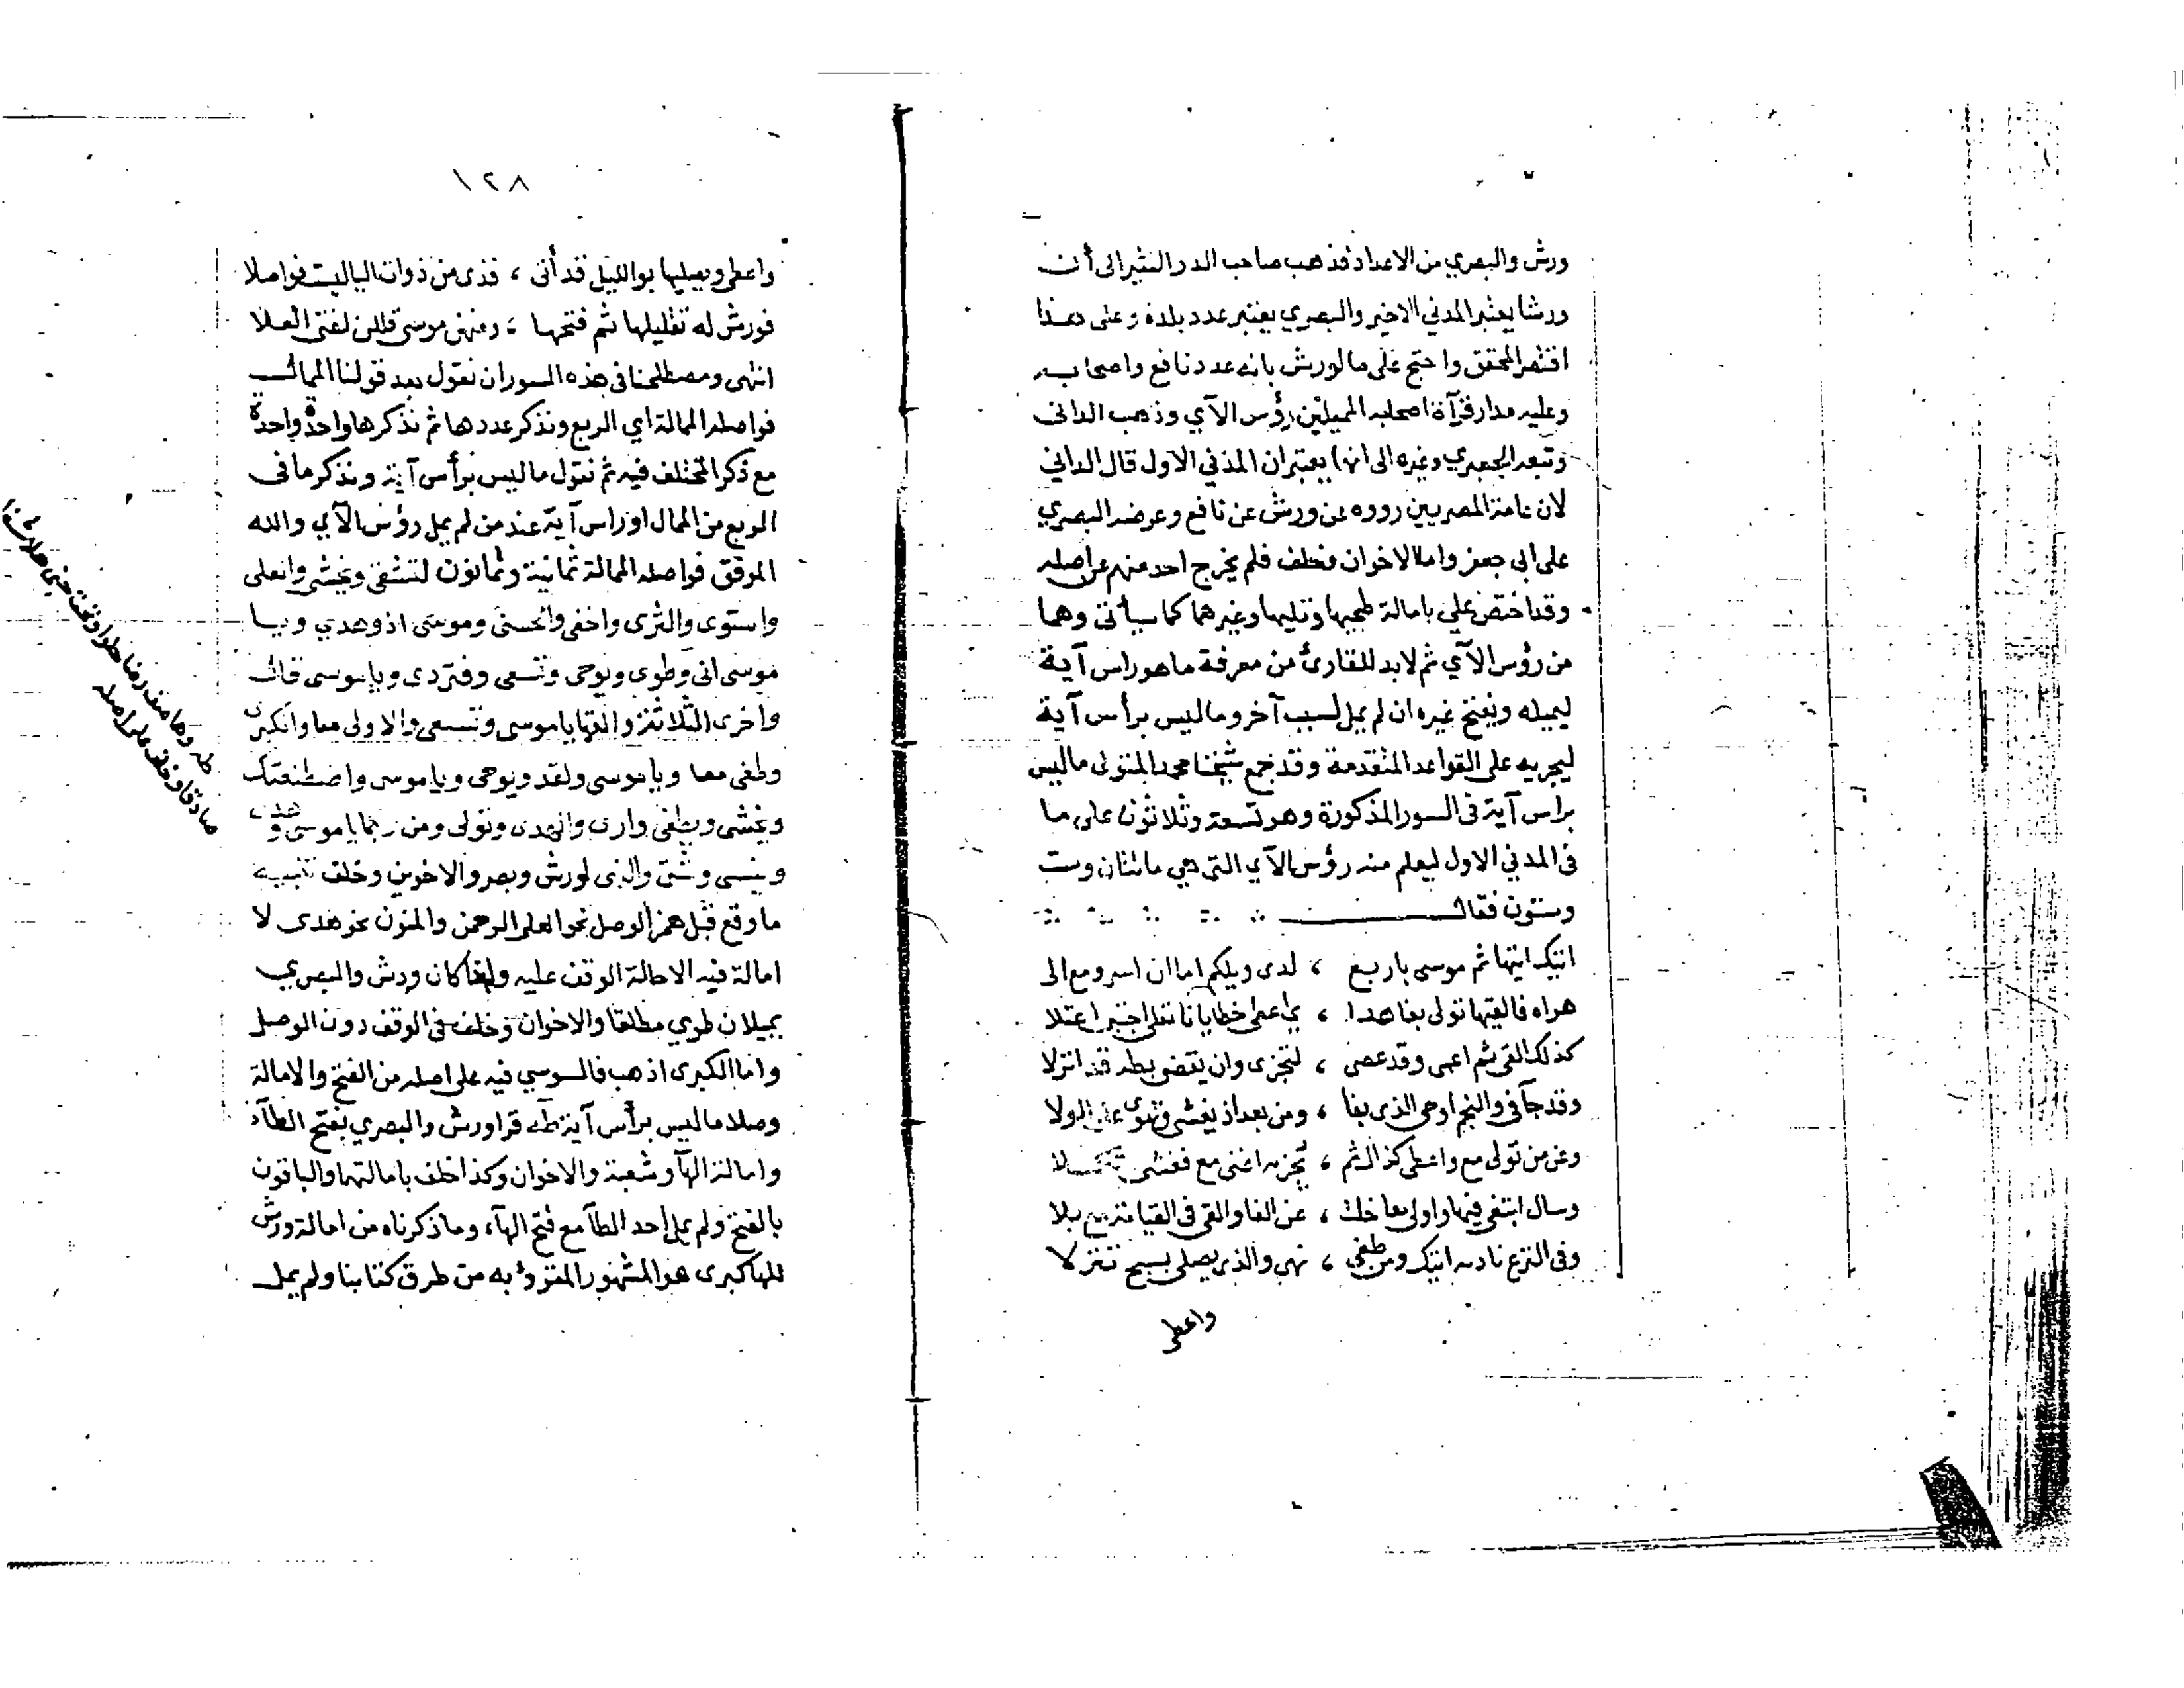 ورش والبصري من الاعداد فذهب صاحب الدر النثير الى أن
ورشا يعتبر المدني الاخير والبصري يعتبر عدد بلده وعلى هذا
اقتصر المحقق واحتج على ما لورش بانه عدد نافع واصحابه
وعليه مدار قرآة اصحابه المميلين رؤس الآي وذهب الداني
وتبعه الجعبري وغيره الى انهما يعتبران المدني الاول قال الداني
لان عامة المصريين رووه عن ورش عن نافع وعرضه البصري
على ابي جعفر واما الاخوان وخلف فلم يخرج احد منهم عن اصله
وقد اختص علي بامالة طحيها وتليها وغيرهما كما سيأتي وهما
من رؤس الآي ثم لابد للقارئ من معرفة ما هو راس آية
ليميله ويفتح غيره ان لم يمل لسبب آخر وما ليس برأس آية
ليجريه على القواعد المتقدمة وقد جمع شيخنا محمد المتولى ماليس
براس آية في السور المذكورة وهو تسعة وثلاثون على ما
في المدني الاول ليعلم منه رؤس الآي التي هي مائتان وست
وستون فقال
اتيك ايتها ثم موسى باربع ، لدى ويلكم اما ان اسر ومع الى
هواه فالقيها تولى بغا هدا ، اعطى خطايانا اعتلا
كذلك القى ثم اعمى وقد عصى ، لتجزى وان يقضى بطه قد انزلا
وقد جآ في والنجم اوحى الذى بغا ، ومن بعد اذ يغشى وتهوى على الولا
وعن من تولى مع واعطى كذا ثم ، يجزيه اغنى مع فغشى
وسال ابتغى فيها واولى معا خلت ، عن الفا والقى في القيامة مع بلا
وفي النزع ناديه اتيك ومن طغى ، نهى والذى يصلى بسبح تنزلا
واعطى
١٢٨
واعطى ويصليها بوالليل قد أتى ، فذى من ذوات اليا ليست فواصلا
فورش له تقليلها ثم فتحها ، وعنهن موسى قللن لفتى العلا
انتهى ومصطلحنا في هذه السور ان نقول بعد قولنا الممال
فواصله الممالة اي الربع ونذكر عددها ثم نذكرها واحدة واحدة
مع ذكر المختلف فيه ثم نقول ما ليس برأس آية ونذكر ما في
الربع من الممال او راس آية عند من لم يمل رؤس الآي والله
الموفق فواصله الممالة ثمانية وثمانون لتشقى ويخشى والعلى
واستوى والثرى واخفى والحسنى وموسى اذ وهدي ويا
موسى انى وطوى ويوحى وتسعى وفتردى ويا موسى قال
واخرى الثلاثة والقها يا موسى وتسعى والاولى معا والكبرى
وطغى معا ويا موسى ولقد ويوحى ويا موسى واصطنعتك
ويخشى ويطغى وارى والهدى وتولى ومن ربكما يا موسى و هدى
وينسى وشتى والنهى لورش وبصر والاخوين وخلف تنبيه
ما وقع قبل همز الوصل نحو العلى الرحمن والمنون نحو هدى لا
امالة فيه الا حالة الوقف عليه ولهذا كان ورش والبصري
يميلان طوى مطلقا والاخوان وخلف في الوقف دون الوصل
واما الكبرى اذهب فالسوسي فيه على اصله من الفتح والامالة
وصلا ما ليس برأس آية طه قرا ورش والبصري بفتح الطآء
وامالة الهآ وشعبة والاخوان وكذا خلف بامالتهما والباقون
بالفتح ولم يمل احد الطآ مع فتح الهآء وما ذكرناه من امالة ورش
للها كبرى هو المشهور المقروء به من طرق كتابنا ولم يمل